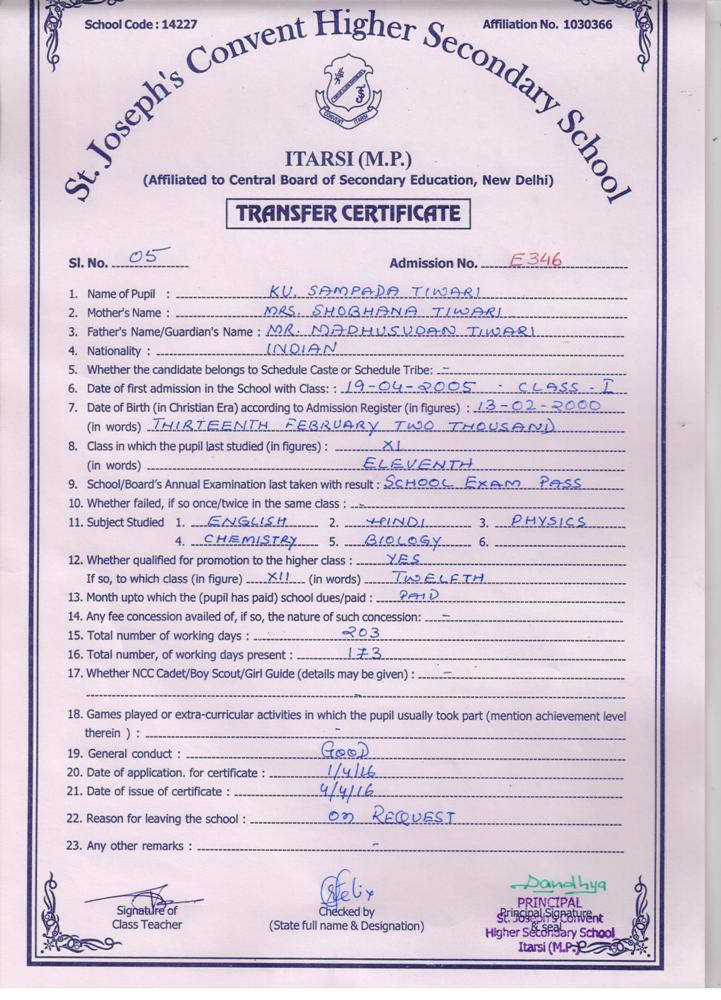 School Code : 14227
Affiliation No. 1030366
St. Joseph's Convent Higher Secondary School
CONVENT ITARSI
ITARSI (M.P.)
(Affiliated to Central Board of Secondary Education, New Delhi)
TRANSFER CERTIFICATE
Sl. No. 05 Admission No. E346
1. Name of Pupil : KU. SAMPADA TIWARI
2. Mother's Name : MRS. SHOBHANA TIWARI
3. Father's Name/Guardian's Name : MR. MADHUSUDAN TIWARI
4. Nationality : INDIAN
5. Whether the candidate belongs to Schedule Caste or Schedule Tribe: -
6. Date of first admission in the School with Class: : 19-04-2005 - CLASS - I
7. Date of Birth (in Christian Era) according to Admission Register (in figures) : 13-02-2000
(in words) THIRTEENTH FEBRUARY TWO THOUSAND
8. Class in which the pupil last studied (in figures) : XI
(in words) ELEVENTH
9. School/Board's Annual Examination last taken with result : SCHOOL EXAM PASS
10. Whether failed, if so once/twice in the same class : -
11. Subject Studied 1. ENGLISH 2. HINDI 3. PHYSICS
4. CHEMISTRY 5. BIOLOGY 6.
12. Whether qualified for promotion to the higher class : YES
If so, to which class (in figure) XII (in words) TWELFTH
13. Month upto which the (pupil has paid) school dues/paid : PAID
14. Any fee concession availed of, if so, the nature of such concession: -
15. Total number of working days : 203
16. Total number, of working days present : 173
17. Whether NCC Cadet/Boy Scout/Girl Guide (details may be given) : -
-
18. Games played or extra-curricular activities in which the pupil usually took part (mention achievement level
therein ) : -
19. General conduct : GOOD
20. Date of application. for certificate : 1/4/16
21. Date of issue of certificate : 4/4/16
22. Reason for leaving the school : on REQUEST
23. Any other remarks : -
Signature of
Class Teacher
Sr Felix
Checked by
(State full name & Designation)
Sandhya
PRINCIPAL
Principal Signature
St. Joseph's Convent
& seal
Higher Secondary School
Itarsi (M.P.)